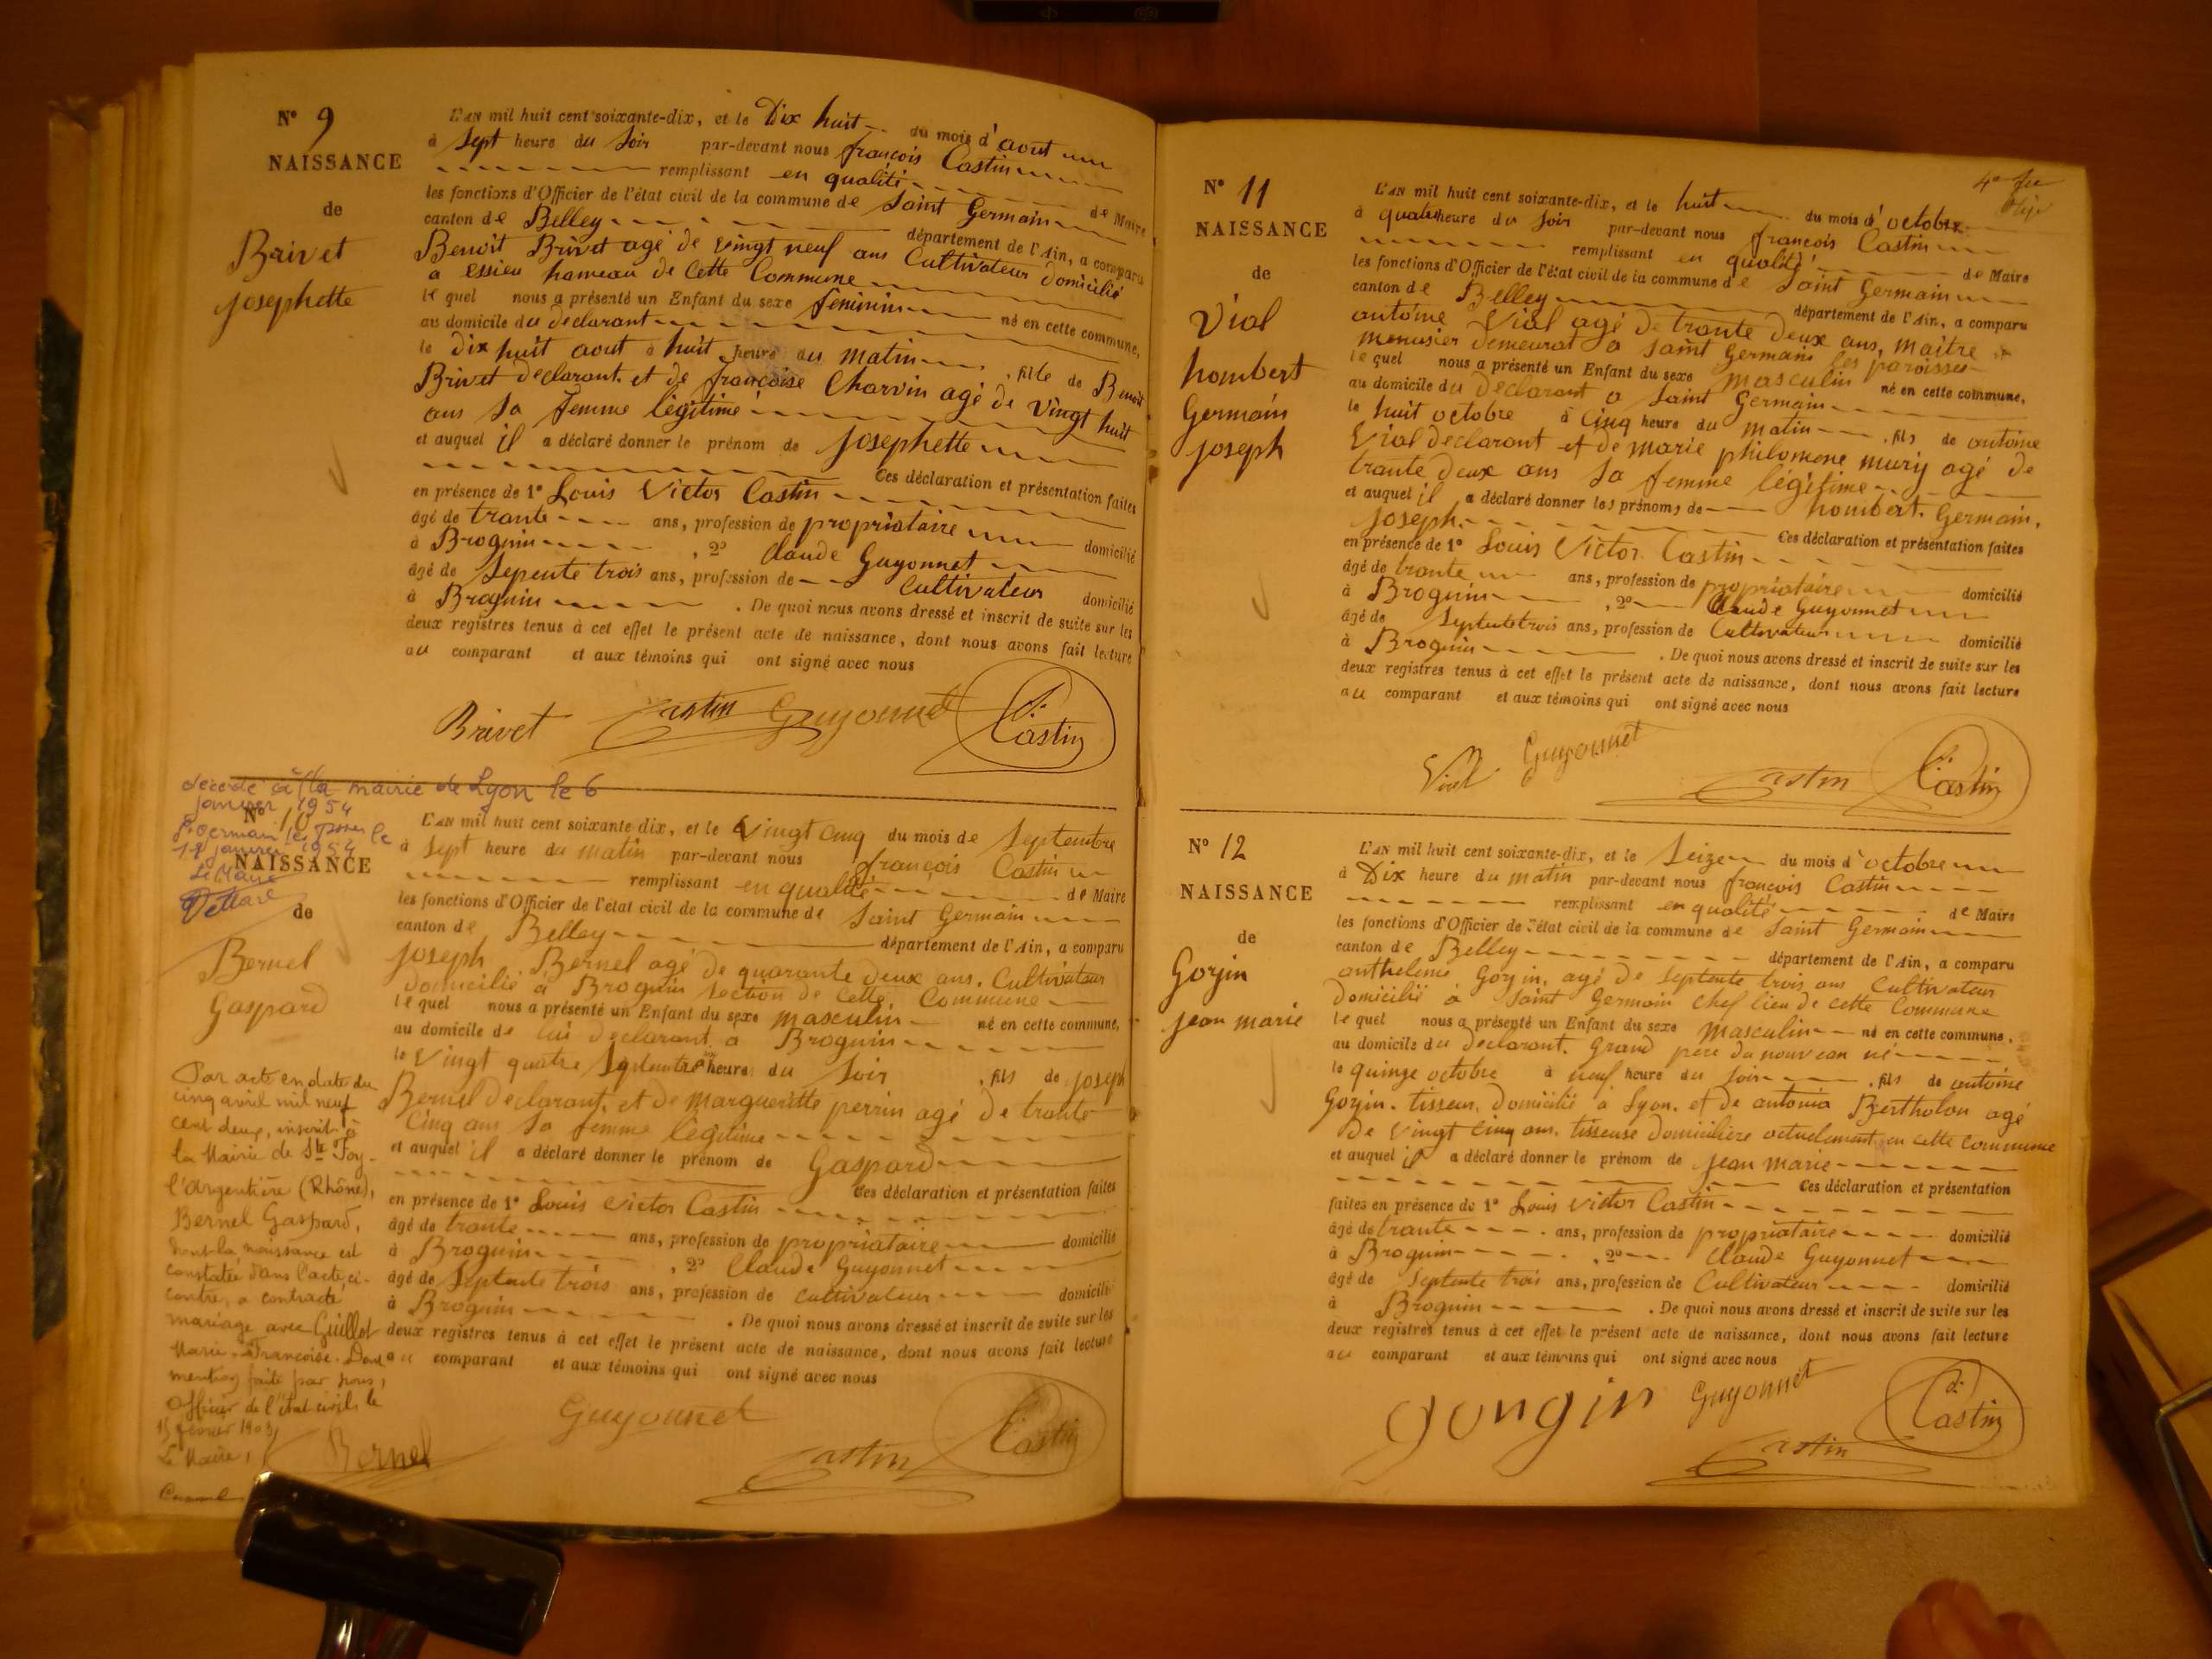 N° 9
NAISSANCE
de
Brivet
josephette
L'AN mil huit cent soixante-dix, et le Dix huit du mois d'aout
à sept heure du soir par-devant nous françois Castin
remplissant en qualité de Maire
les fonctions d'Officier de l'état civil de la commune de Saint Germain
canton de Belley département de l'Ain, a comparu
Benoit Brivet agé de vingt neuf ans Cultivateur domicilié
a essieu hameau de cette Commune
le quel nous a présenté un Enfant du sexe feminin né en cette commune,
au domicile du declarant
le dix huit aout à huit heure du matin , fille de Benoit
Brivet declarant. et de françoise Charvin agé de vingt huit
ans sa femme légitime
et auquel il a déclaré donner le prénom de josephette
Ces déclaration et présentation faites
en présence de 1° Louis Victor Castin
âgé de trante ans, profession de propriataire domicilié
à Brognin , 2° Claude Guyonnet
âgé de Sepente trois ans, profession de Cultivateur domicilié
à Brognin . De quoi nous avons dressé et inscrit de suite sur les
deux registres tenus à cet effet le présent acte de naissance, dont nous avons fait lecture
au comparant et aux témoins qui ont signé avec nous
Brivet Castin Guyonnet f. Castin
décédé à la mairie de Lyon le 6
janvier 1954
St Germain les Paroisses le
18 janvier 1954
Le Maire
N° 10
NAISSANCE
de
Bernel
Gaspard
L'AN mil huit cent soixante-dix, et le vingt cinq du mois de Septembre
à sept heure du matin par-devant nous françois Castin
remplissant en qualité de Maire
les fonctions d'Officier de l'état civil de la commune de Saint Germain
canton de Belley département de l'Ain, a comparu
joseph Bernel agé de quarante deux ans. Cultivateur
domicilié à Brognin section de cette Commune
le quel nous a présenté un Enfant du sexe masculin né en cette commune,
au domicile de lui declarant a Brognin
le vingt quatre Septembre heure du soir , fils de joseph
Bernel declarant. et de margueritte perrin agé de trante
Cinq ans sa femme légitime
et auquel il a déclaré donner le prénom de Gaspard
Ces déclaration et présentation faites
en présence de 1° Louis victor Castin
âgé de trante ans, profession de propriataire domicilié
à Brognin , 2° Claude Guyonnet
âgé de Septente trois ans, profession de cultivateur domicilié
à Brognin . De quoi nous avons dressé et inscrit de suite sur les
deux registres tenus à cet effet le présent acte de naissance, dont nous avons fait lecture
au comparant et aux témoins qui ont signé avec nous
Par acte en date du
cinq avril mil neuf
cent deux, inscrit à
la Mairie de Ste Foy-
l'argentière (Rhône),
Bernel Gaspard,
dont la naissance est
constatée dans l'acte ci-
contre, a contracté
mariage avec Guillot
Marie-Françoise. Dont
mention faite par nous,
officier de l'état civil, le
15 février 1903
Le Maire,
Bernel Guyonnet Castin f. Castin
4e fe
N° 11
NAISSANCE
de
Vial
hombert
Germain
joseph
L'AN mil huit cent soixante-dix, et le huit du mois d'octobre
à quatre heure du soir par-devant nous françois Castin
remplissant en qualité de Maire
les fonctions d'Officier de l'état civil de la commune de Saint Germain
canton de Belley département de l'Ain, a comparu
antoine Vial agé de trante deux ans, maitre
menusier demeurat a Saint Germain les paroisses
le quel nous a présenté un Enfant du sexe masculin né en cette commune,
au domicile du declarant a Saint Germain
le huit octobre à Cinq heure du matin , fils de antoine
Vial declarant et de marie philomene mury agé de
trante deux ans sa femme légitime
et auquel il a déclaré donner les prénoms de hombert. Germain.
joseph.
Ces déclaration et présentation faites
en présence de 1° Louis Victor Castin
âgé de trante ans, profession de propriataire domicilié
à Brognin , 2° Claude Guyonnet
âgé de Septente trois ans, profession de Cultivateur domicilié
à Brognin . De quoi nous avons dressé et inscrit de suite sur les
deux registres tenus à cet effet le présent acte de naissance, dont nous avons fait lecture
au comparant et aux témoins qui ont signé avec nous
Vial Guyonnet Castin f. Castin
N° 12
NAISSANCE
de
Gojin
jean marie
L'AN mil huit cent soixante-dix, et le Seize du mois d'octobre
à Dix heure du matin par-devant nous françois Castin
remplissant en qualité de Maire
les fonctions d'Officier de l'état civil de la commune de Saint Germain
canton de Belley département de l'Ain, a comparu
anthelme Gojin. agé de septente trois ans Cultivateur
domicilié à Saint Germain chef lieu de cette Commune
le quel nous a présenté un Enfant du sexe masculin né en cette commune,
au domicile du declarant. Grand pere du nouveau né
le quinze octobre à neuf heure du soir , fils de antoine
Gojin. tisseur, domicilié à Lyon. et de antonia Bertholon agé
de vingt cinq ans. tisseuse domicilière actuelement en cette commune
et auquel il a déclaré donner le prénom de jean marie
Ces déclaration et présentation
faites en présence de 1° Louis victor Castin
âgé de trante ans, profession de propriataire domicilié
à Brognin , 2° Claude Guyonnet
âgé de Septente trois ans, profession de Cultivateur domicilié
à Brognin . De quoi nous avons dressé et inscrit de suite sur les
deux registres tenus à cet effet le présent acte de naissance, dont nous avons fait lecture
au comparant et aux témoins qui ont signé avec nous
gougin Guyonnet Castin f. Castin